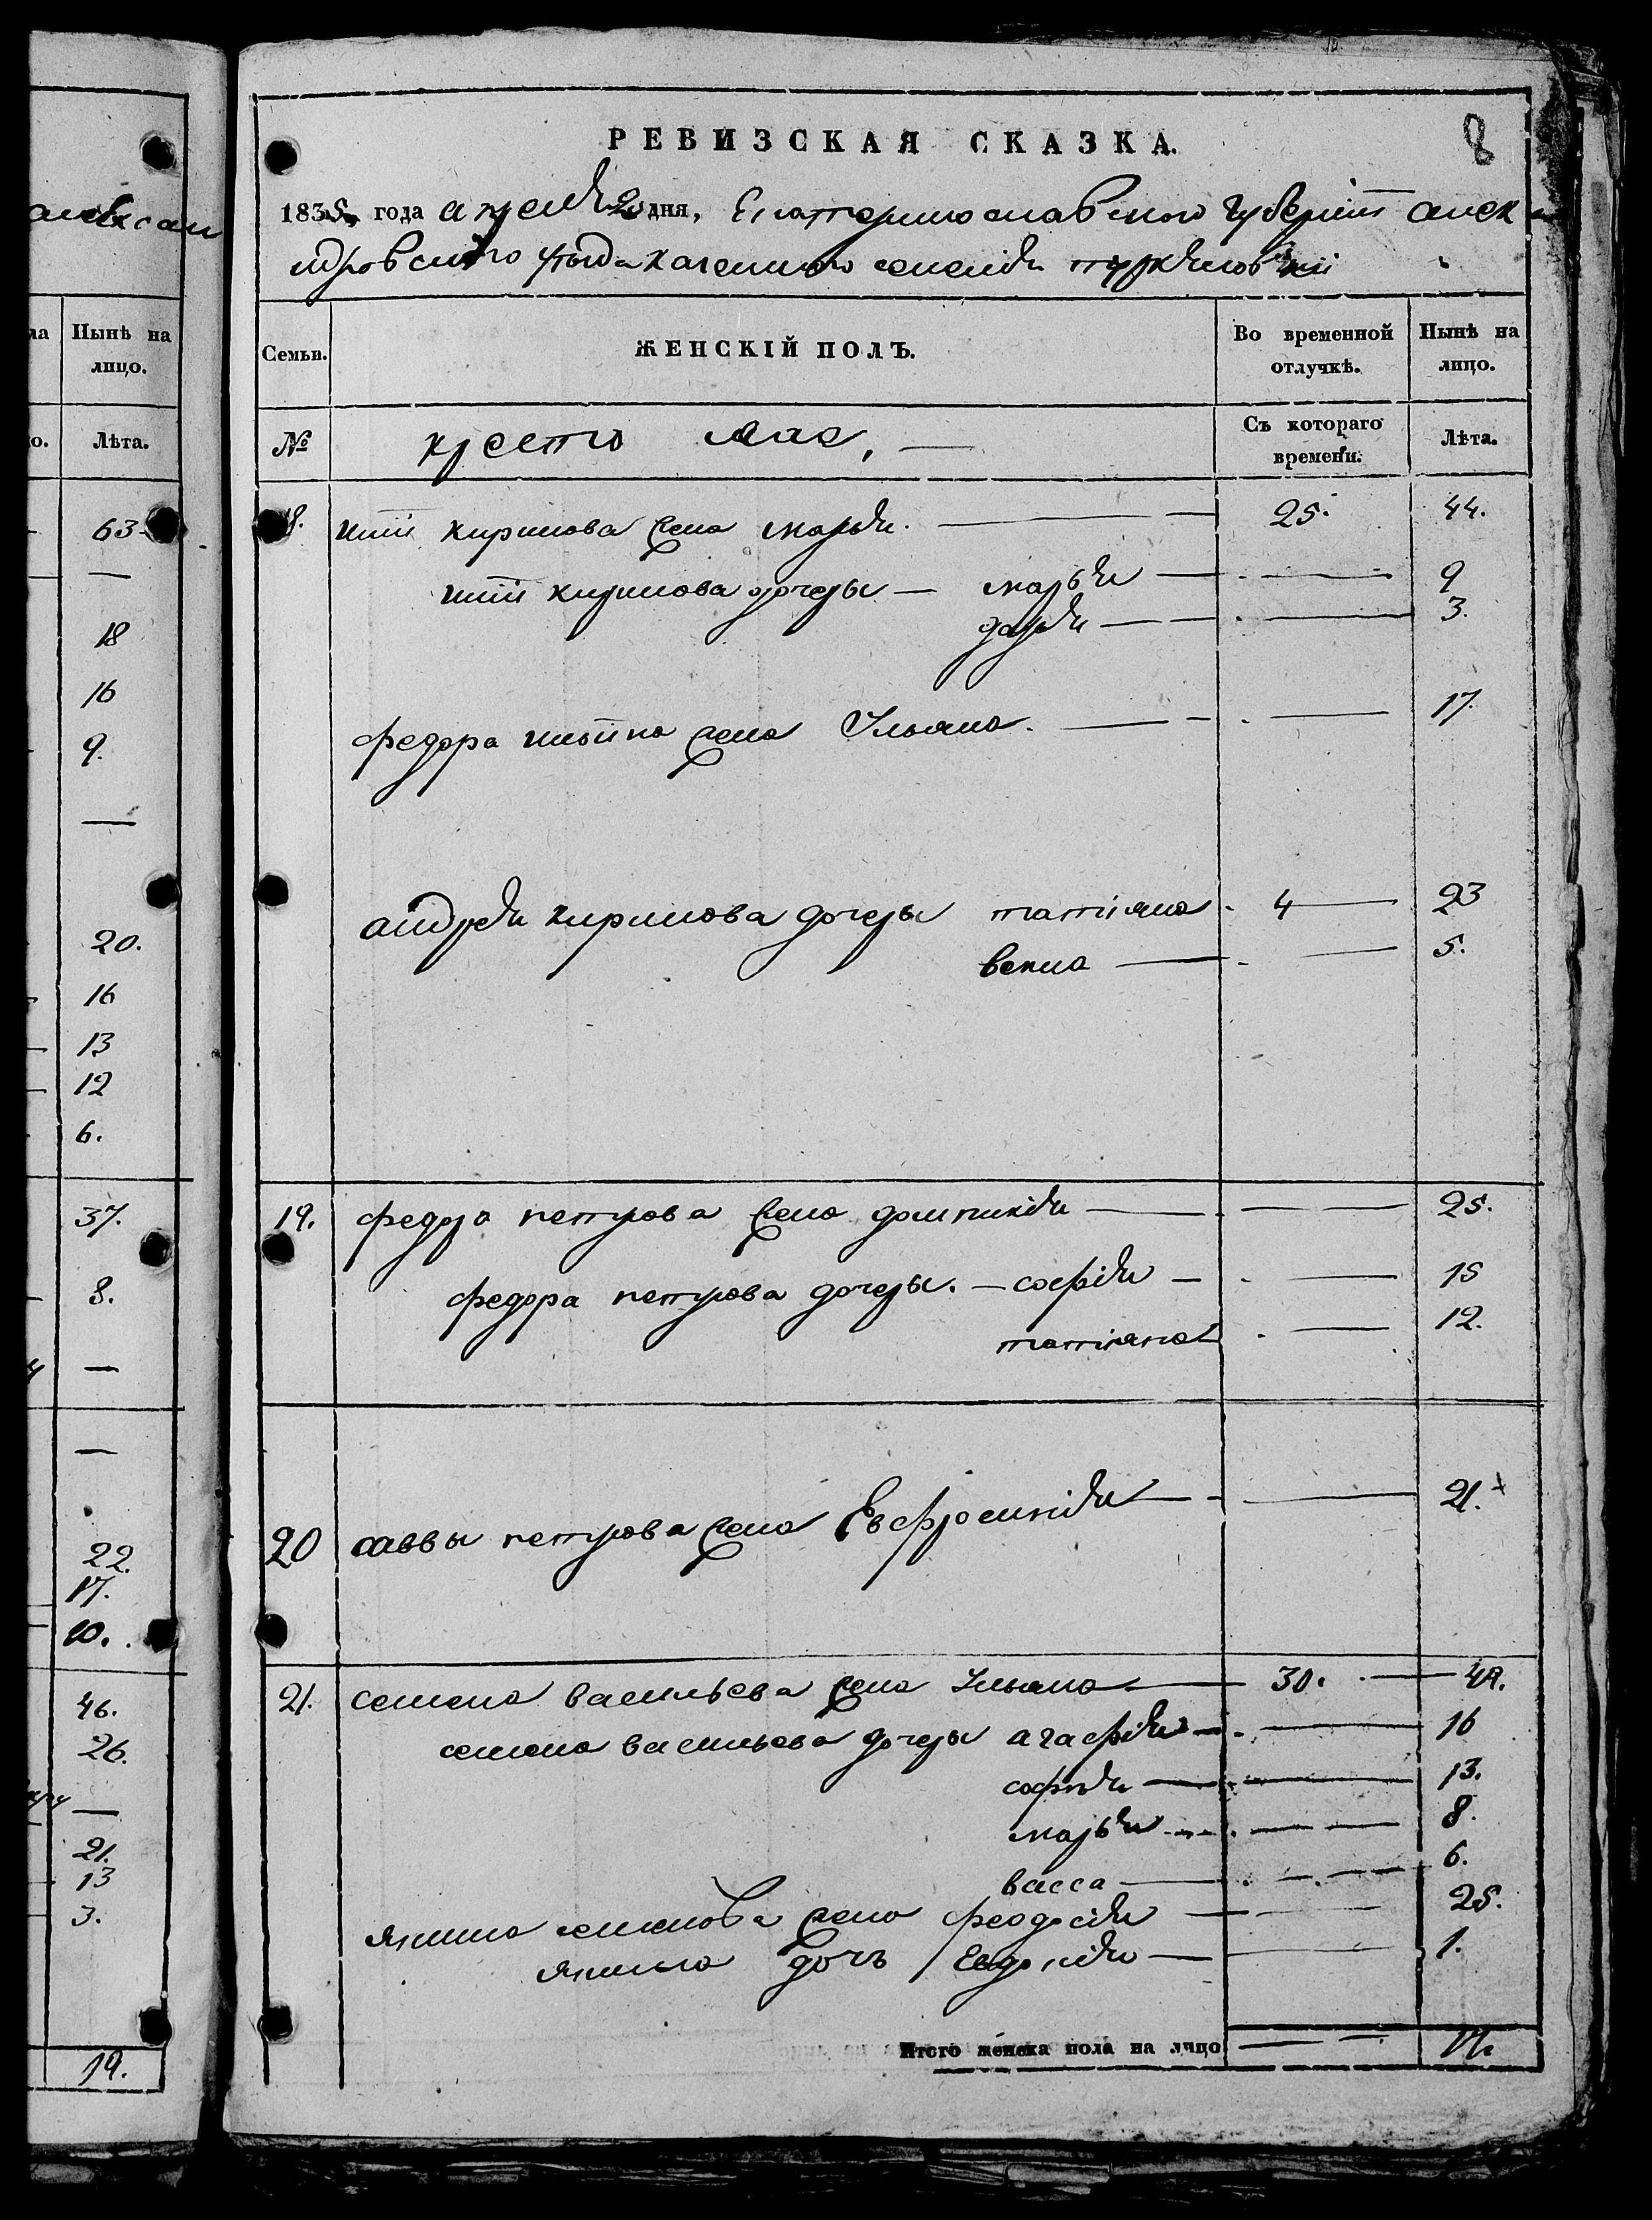 алексан
Нынѣ на
лицо.
Лѣта.
63.
—
18
16
9.
—
20.
16
13
12
6.
37.
8.
—
—
22.
17.
10.
46.
26.
—
21.
13
3.
19.
8
РЕВИЗСКАЯ СКАЗКА.
1835 года апреля 20 дня, Екатеринославской губернiи алек
ндровского уезда казенного селенiя
Семьи. ЖЕНСКІЙ ПОЛЪ. Во временной отлучкѣ. Нынѣ на лицо.
№ Съ котораго времени. Лѣта.
кирилова жена марья. — 25. 44.
кирилова дочеры — марья — 9
дарья — 3.
федора жена Ульяна. — 17.
андрея кирилова дочеры татiяна 4 — 23
— 5.
19. федора петрова жена домникiя — 25.
федора петрова дочеры. — софiя — 15
татiяна — 12.
20 саввы петрова жена Евфросинiя — 21.
21. семена васильева жена Ульяна — 30. — 49.
семена васильева дочеры агафiя — 16
софiя — 13.
марья — 8.
васса — 6.
якима семенова жена феодосiя — 25.
якима дочь Евдокiя — 1.
Итого женска пола на лицо — 17.